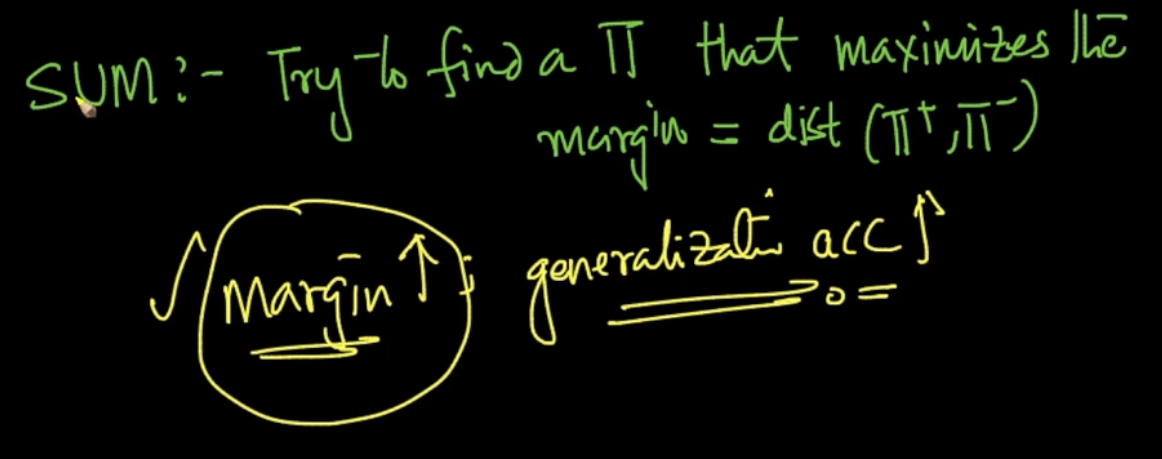 SVM :- Try to find a π that maximizes the
margin = dist (π⁺, π⁻)
Margin ↑ ; generalization acc ↑